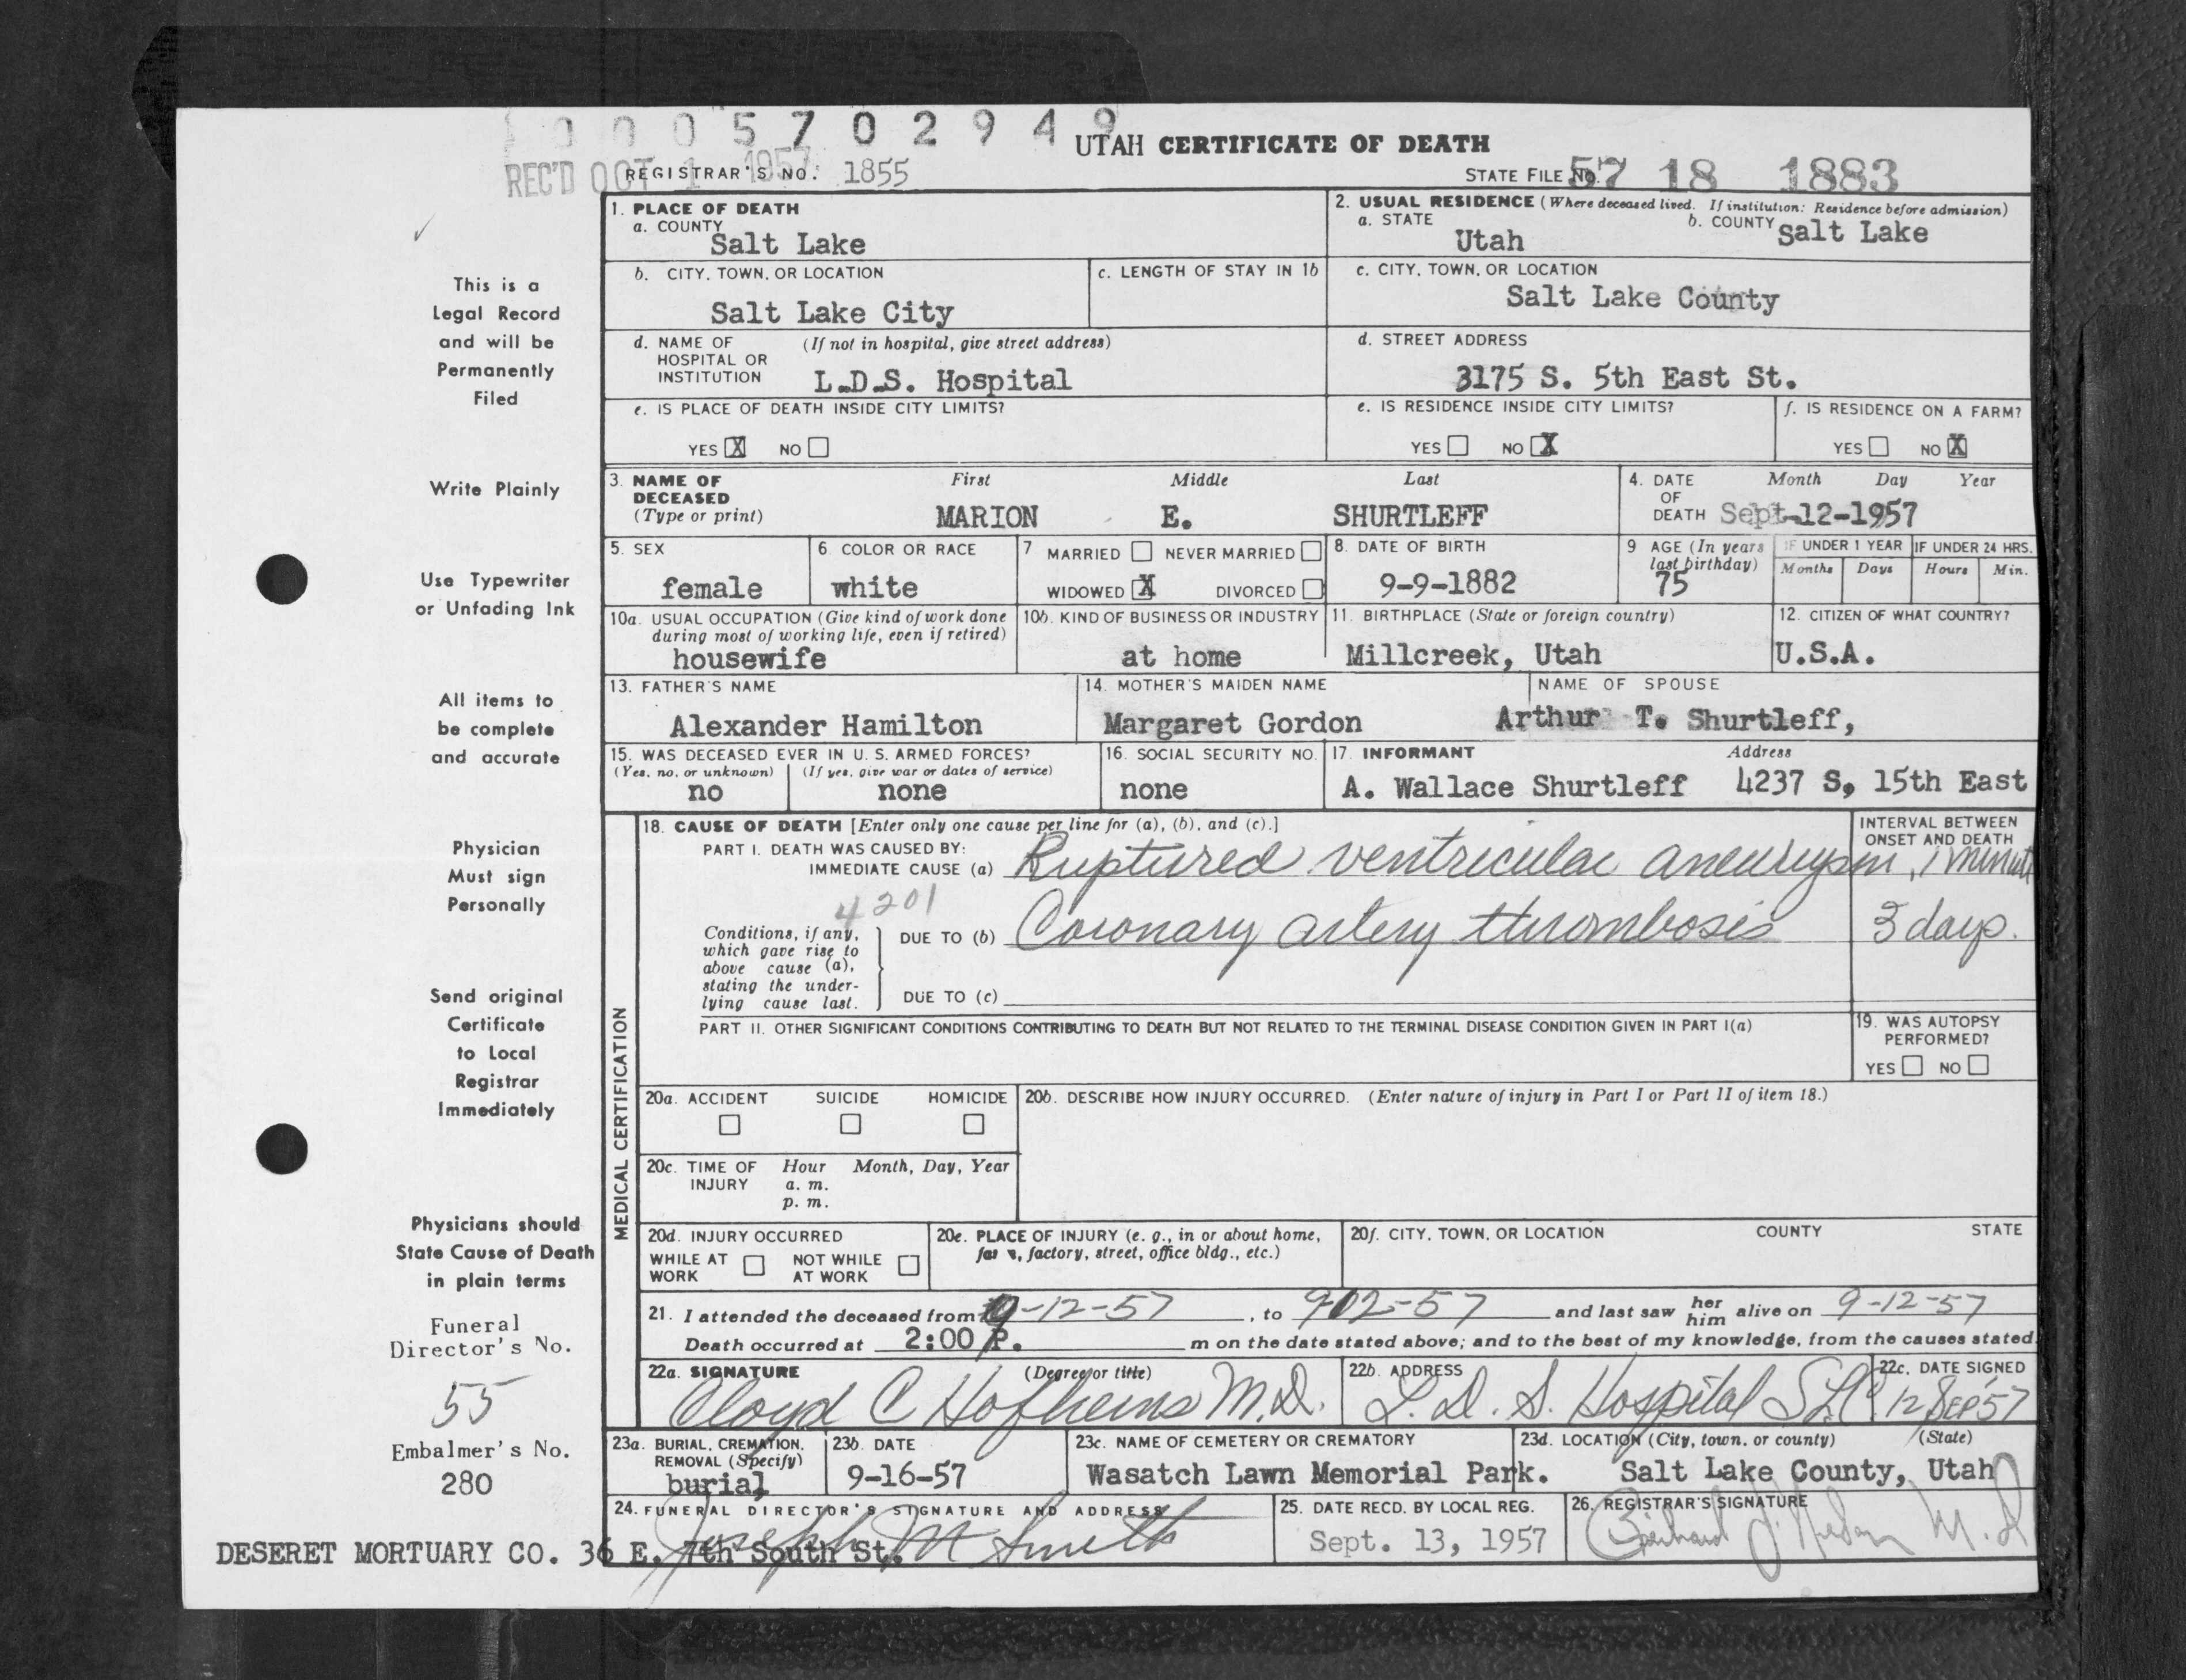 0 0 0 5 7 0 2 9 4 9
UTAH CERTIFICATE OF DEATH
REC'D OCT 1 1957
REGISTRAR'S NO. 1855
STATE FILE NO. 57 18 1883
This is a
Legal Record
and will be
Permanently
Filed
Write Plainly
Use Typewriter
or Unfading Ink
All items to
be complete
and accurate
Physician
Must sign
Personally
Send original
Certificate
to Local
Registrar
Immediately
Physicians should
State Cause of Death
in plain terms
Funeral
Director's No.
55
Embalmer's No.
280
1. PLACE OF DEATH
a. COUNTY
Salt Lake
2. USUAL RESIDENCE (Where deceased lived. If institution: Residence before admission)
a. STATE
Utah
b. COUNTY Salt Lake
b. CITY, TOWN, OR LOCATION
Salt Lake City
c. LENGTH OF STAY IN 1b
c. CITY, TOWN, OR LOCATION
Salt Lake County
d. NAME OF (If not in hospital, give street address)
HOSPITAL OR
INSTITUTION L.D.S. Hospital
d. STREET ADDRESS
3175 S. 5th East St.
e. IS PLACE OF DEATH INSIDE CITY LIMITS?
YES X NO
e. IS RESIDENCE INSIDE CITY LIMITS?
YES NO X
f. IS RESIDENCE ON A FARM?
YES NO X
3. NAME OF First Middle Last
DECEASED
(Type or print) MARION E. SHURTLEFF
4. DATE Month Day Year
OF
DEATH Sept-12-1957
5. SEX
female
6. COLOR OR RACE
white
7 MARRIED NEVER MARRIED
WIDOWED X DIVORCED
8. DATE OF BIRTH
9-9-1882
9 AGE (In years
last birthday)
75
IF UNDER 1 YEAR
Months Days
IF UNDER 24 HRS.
Hours Min.
10a. USUAL OCCUPATION (Give kind of work done
during most of working life, even if retired)
housewife
10b. KIND OF BUSINESS OR INDUSTRY
at home
11. BIRTHPLACE (State or foreign country)
Millcreek, Utah
12. CITIZEN OF WHAT COUNTRY?
U.S.A.
13. FATHER'S NAME
Alexander Hamilton
14. MOTHER'S MAIDEN NAME
Margaret Gordon
NAME OF SPOUSE
Arthur T. Shurtleff,
15. WAS DECEASED EVER IN U. S. ARMED FORCES?
(Yes, no, or unknown) (If yes, give war or dates of service)
no none
16. SOCIAL SECURITY NO.
none
17. INFORMANT Address
A. Wallace Shurtleff 4237 S, 15th East
MEDICAL CERTIFICATION
18. CAUSE OF DEATH [Enter only one cause per line for (a), (b), and (c).]
INTERVAL BETWEEN
ONSET AND DEATH
PART I. DEATH WAS CAUSED BY:
IMMEDIATE CAUSE (a) Ruptured ventricular aneurysm, 1 minute
4201
Conditions, if any,
which gave rise to
above cause (a),
stating the under-
lying cause last.
DUE TO (b) Coronary artery thrombosis 3 days.
DUE TO (c)
PART II. OTHER SIGNIFICANT CONDITIONS CONTRIBUTING TO DEATH BUT NOT RELATED TO THE TERMINAL DISEASE CONDITION GIVEN IN PART I(a)
19. WAS AUTOPSY
PERFORMED?
YES NO
20a. ACCIDENT SUICIDE HOMICIDE
20b. DESCRIBE HOW INJURY OCCURRED. (Enter nature of injury in Part I or Part II of item 18.)
20c. TIME OF Hour Month, Day, Year
INJURY a. m.
p. m.
20d. INJURY OCCURRED
WHILE AT NOT WHILE
WORK AT WORK
20e. PLACE OF INJURY (e. g., in or about home,
farm, factory, street, office bldg., etc.)
20f. CITY, TOWN, OR LOCATION COUNTY STATE
21. I attended the deceased from 9-12-57, to 9-12-57 and last saw her him alive on 9-12-57
Death occurred at 2:00 P. m on the date stated above; and to the best of my knowledge, from the causes stated
22a. SIGNATURE (Degree or title)
Cloyd C Hofheins M.D.
22b. ADDRESS
L. D. S. Hospital SLC.
22c. DATE SIGNED
12 Sep '57
23a. BURIAL, CREMATION,
REMOVAL (Specify)
burial
23b. DATE
9-16-57
23c. NAME OF CEMETERY OR CREMATORY
Wasatch Lawn Memorial Park.
23d. LOCATION (City, town, or county) (State)
Salt Lake County, Utah
24. FUNERAL DIRECTOR'S SIGNATURE AND ADDRESS
Joseph M Smith
DESERET MORTUARY CO. 36 E. 7th South St.
25. DATE RECD. BY LOCAL REG.
Sept. 13, 1957
26. REGISTRAR'S SIGNATURE
M. D